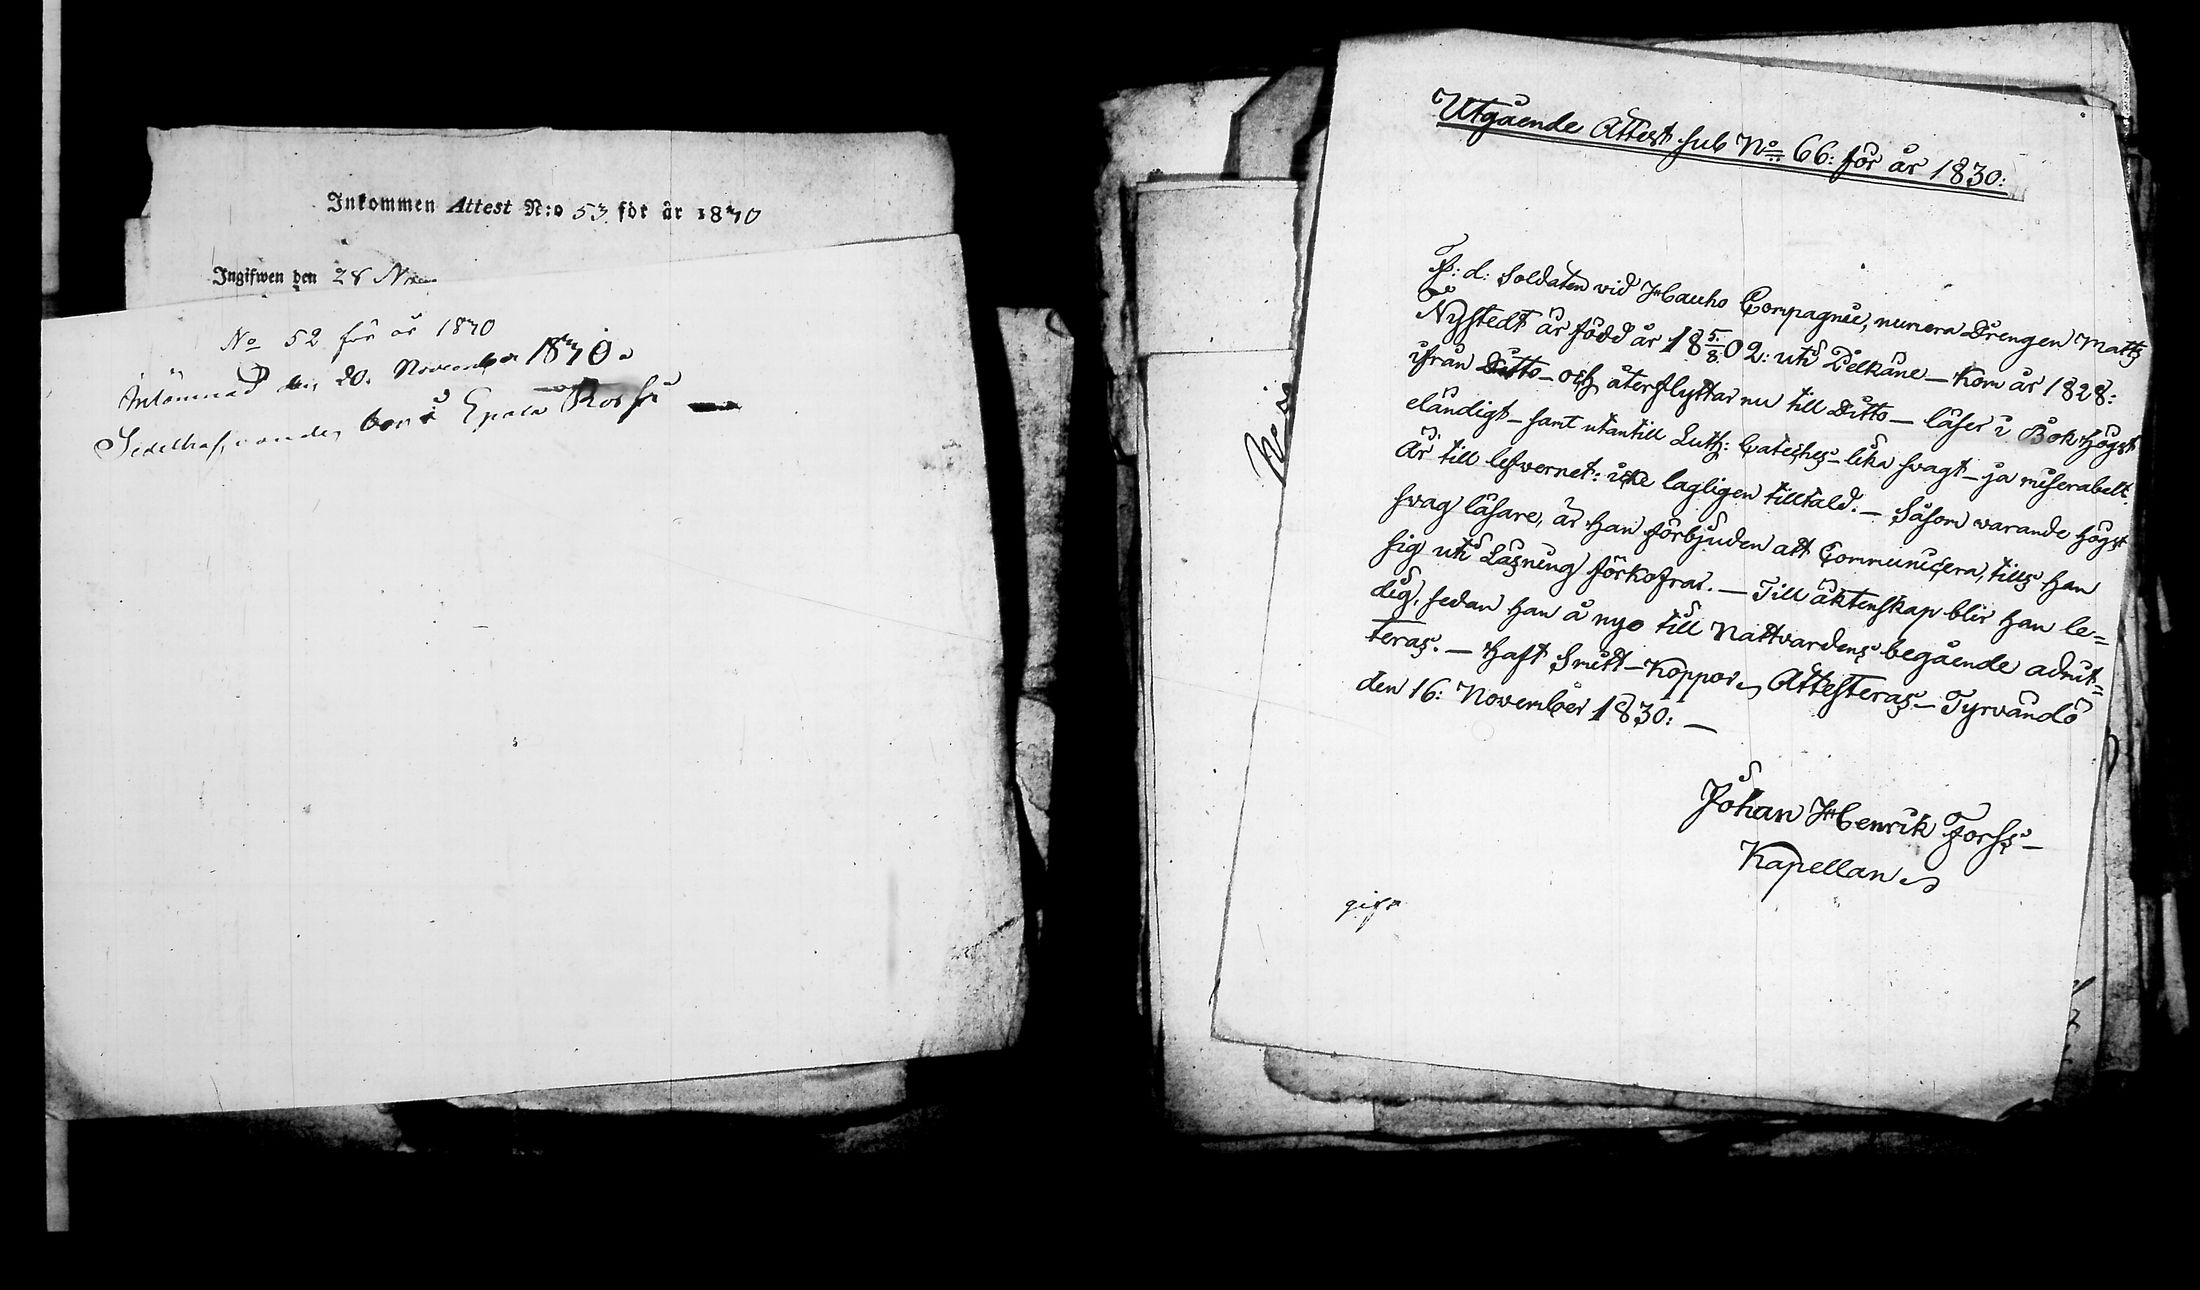 Inkommen Attest N:o 53 för år 1830
Ingifwen den 28 Nov
No 52 för år 1830
Inlämnad den 20. November 1830.
bor i Epala
Utgående Attest sub No 66: för år 1830:
F: d: Soldaten vid Hauho Compagnie, numera Drengen Matts
Nystedt är född år 18 5/8 02: uti Pelkäne – kom år 1828:
ifrån Ditto – och återflyttar nu till Ditto – läser i Bok högst
eländigt – samt utantill Luth: Cateches – lika svagt – ja miserabelt.
Är till lefwernet: icke lagligen tilltald. – Såsom warande högst
svag läsare, är han förbjuden att Communicera, tills han
sig uti Läsning förkofrar. – Till äktenskap blir han le=
dig, sedan han å nyo till Nattvardens begående admit=
teras. – Haft Smitt-Koppor. Attesteras – Tyrvändö
den 16: November 1830: –
Johan Henrik Forss –
Kapellan